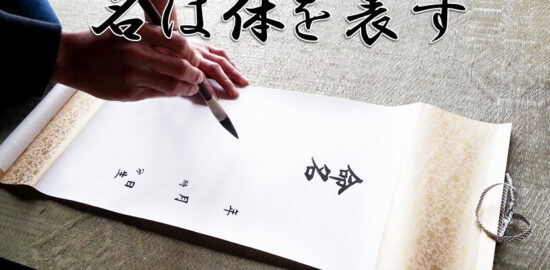 名は体を表す
命名
年
月
時
日
分
生